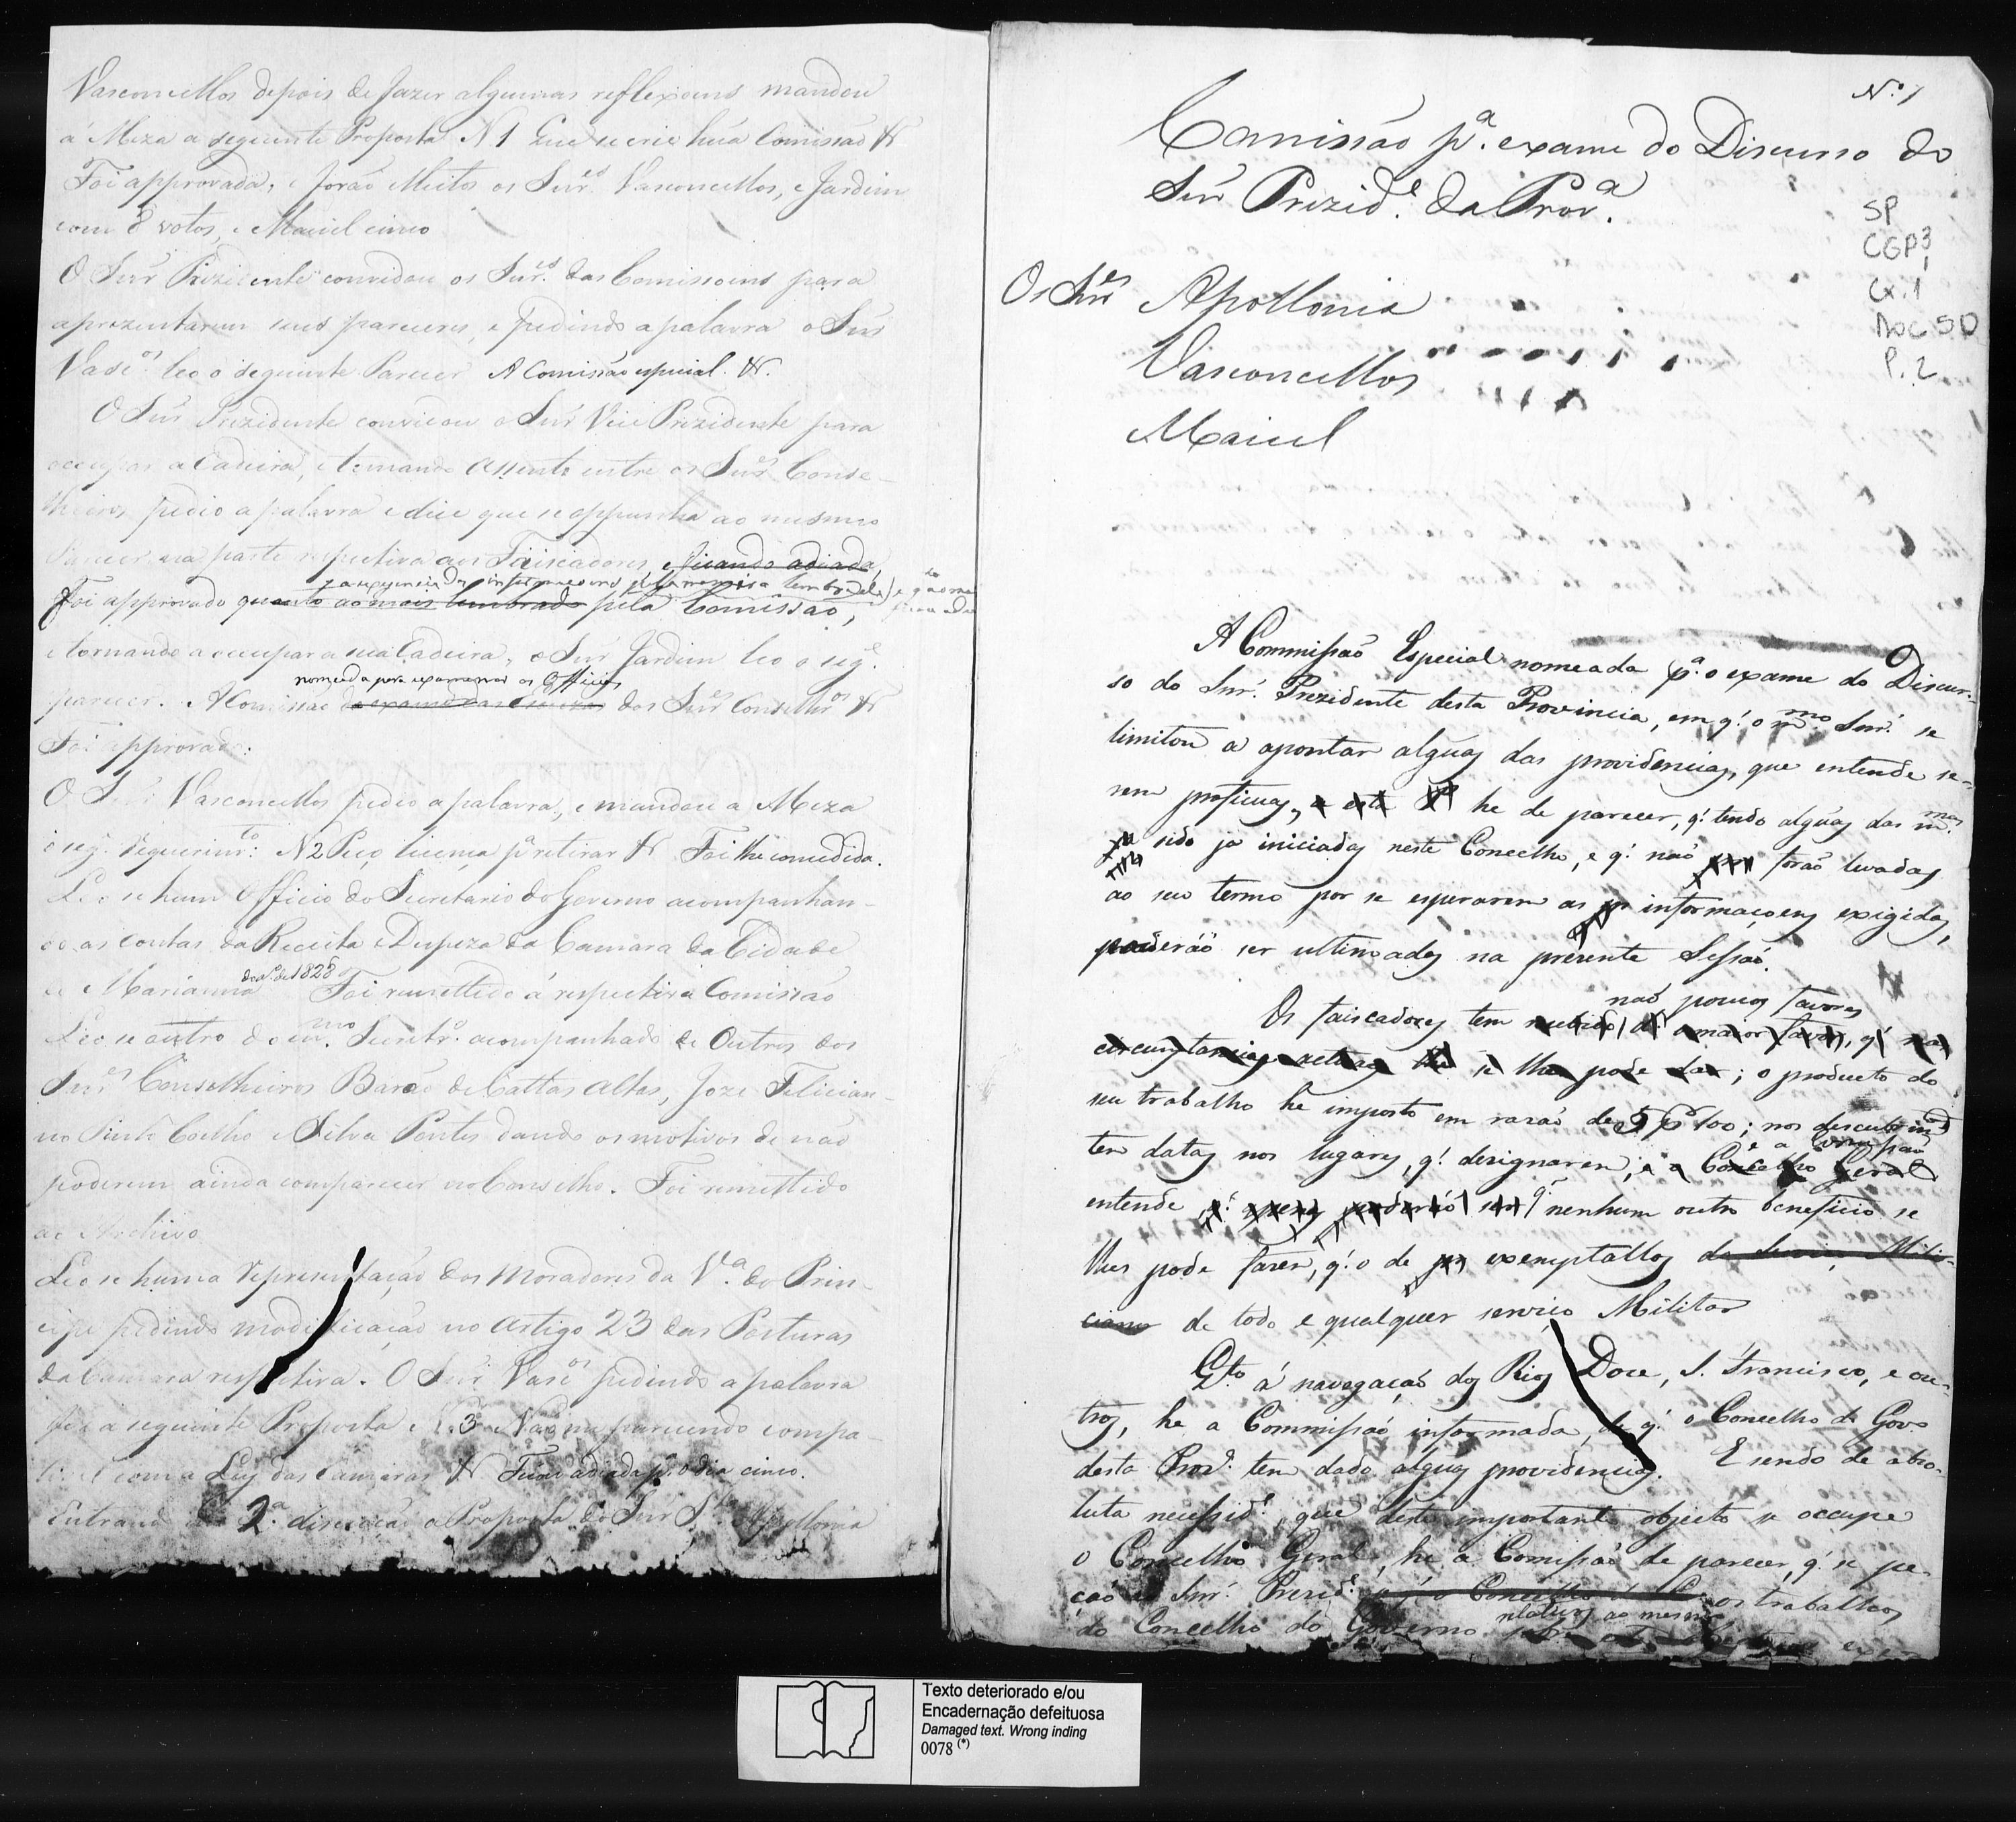 Vasconcellos depois de fazer algumas reflexoens mandou
á Meza a seguinte Proposta N 1 Que se crie huã Comissão &
Foi approvada, e forão eleitos os Snr.es Vasconcellos, e Jardim
com 8 votos, e Maciel cinco
O Snr Prezidente convidou os Snr.es das Comissoens para
aprezentarem seus pareceres, e pedindo a palavra o Snr
Vasc.os leo o seguinte Parecer A Comissão especial &.
O Snr Prezidente convidou o Snr Vice Prezidente para
occupar a Cadeira, e tomando assento entre os Snr.es Conse-
lheiros, pedio a palavra e dice que se oppunha ao mesmo
Parecer na parte respectiva aos Faiscadores, e ficando adiada,
Foi approvado quanto ao mais lembrado pela Comissão,
e tornando a occupar a sua Cadeira, o Snr Jardim leo o seg.e
nomeada para examinar os Officios
parecer. A Comissão dos Snr.es Conselhr.os &
Foi approvado.
O Snr Vasconcellos pedio a palavra, e mandou a Meza
o seg.e requerim.to: N2 Peço licença p.a retirar & Foi lhe concedida.
Leo se hum Officio do Secretario do Governo acompanhan-
do as contas da Receita e Despeza da Camara da Cidade
de Marianna do a.o de 1828 Foi remettido á respectiva Comissão
Leo se outro do m.mo Secretr.o acompanhado de Outros dos
Snr.es Conselheiros Barão de Cattas Altas, Joze Felician-
no Pinto Coelho e Silva Pontes dando os motivos de não
poderem ainda comparecer no Conselho. Foi remettido
ao Archivo
Leo se huma representação dos Moradores da V.a do Prin-
cipe pedindo modificação no Artigo 23 das Posturas
da Camara respectiva. O Snr Vasc.os pedindo a palavra
fez a seguinte Proposta N.3 Não me parecendo compa-
tivel com a Ley das Camaras & Ficou adiada p.a o dia cinco.
Entrando em 2.a discução a Proposta do Snr S.ta Apollonia
N.o 1
Comissão p.a exame do Discurso do
Snr Prezid.e da Prov.a
SP
CGP3
Cx.1
DOC 50
P. 2
Os Snr.es Apollonia
Vasconcellos
Maciel
A Commissão Especial nomeada p.a o exame do Discur-
so do Snr. Prezidente desta Provincia, em q.' o m.mo Snr. se
limitou a apontar alguãs das providencias, que entende se-
rem proficuas, he de parecer, q.' tendo alguãs das m.mas
sido já iniciadas neste Concelho, e q.' não forão levadas
ao seu termo por se esperarem as informaçoens exigidas,
poderáõ ser ultimadas na presente Sessão.
não poucos favores
Os faiscadores tem recebido o maior favor, q.' nas
circunstancias actuaes se lhes pode dar; o producto do
seu trabalho he imposto em razão de 5 p.r 100; nos descubertos
tem datas nos lugares, q.' designarem; e a Comissão
Concelho Geral
entende q.' nenhum outro beneficio se
lhes pode fazer, q.' o de exemptallos do serviço Mili-
ciano de todo, e qualquer serviço Militar
Q.to á navegação dos Rios Doce, S. Francisco, e ou-
tros, he a Commissão informada, de q.' o Concelho do Gov.o
desta Prov.a tem dado alguãs providencias. E sendo de abso-
luta necessid.e, que deste importante objecto se occupe
o Concelho Geral, he a Comissão de parecer, q.' se pe-
ção ao Snr. Presid.e os trabalhos
relativos ao mesmo
do Concelho do Governo
Texto deteriorado e/ou
Encadernação defeituosa
Damaged text. Wrong inding
0078 (*)